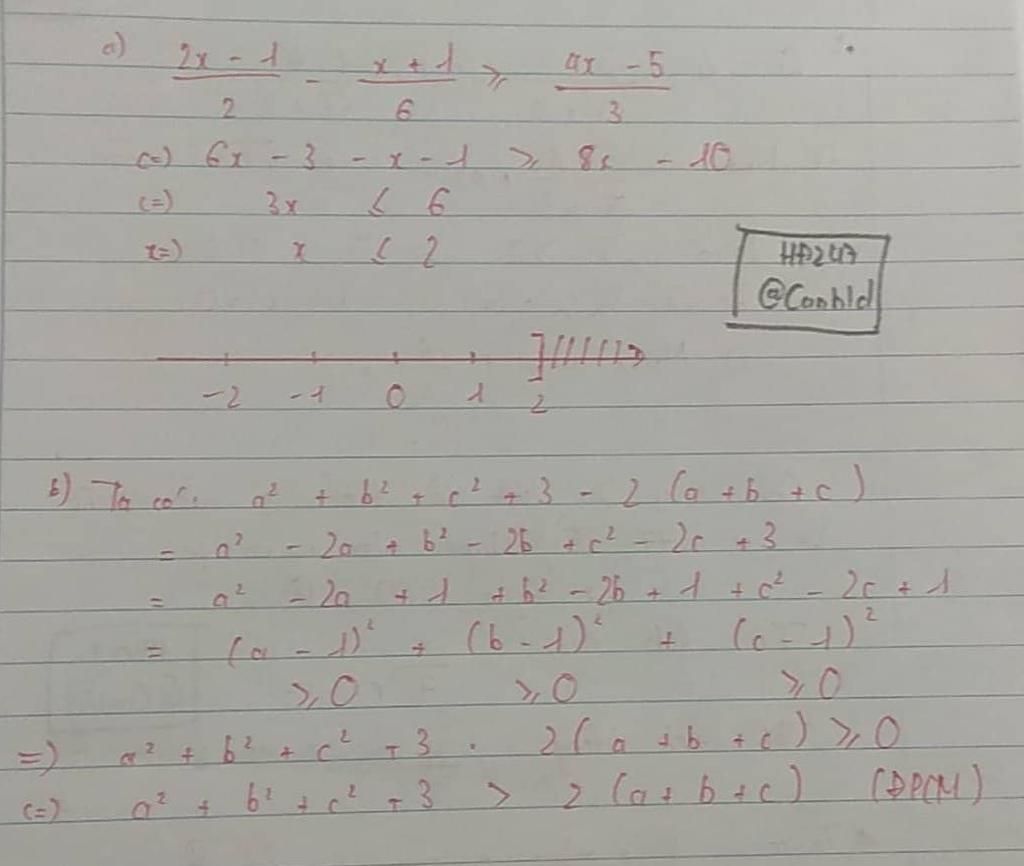 a) (2x - 1)/2 - (x + 1)/6 ≥ (4x - 5)/3
(=) 6x - 3 - x - 1 ≥ 8x - 10
(=) 3x ≤ 6
(=) x ≤ 2
@Coobld
-2 -1 0 1 2
b) Ta có: a² + b² + c² + 3 - 2 (a + b + c)
= a² - 2a + b² - 2b + c² - 2c + 3
= a² - 2a + 1 + b² - 2b + 1 + c² - 2c + 1
= (a - 1)² + (b - 1)² + (c - 1)²
≥ 0 ≥ 0 ≥ 0
=) a² + b² + c² + 3 - 2 (a + b + c) ≥ 0
(=) a² + b² + c² + 3 > 2 (a + b + c) (ĐPCM)